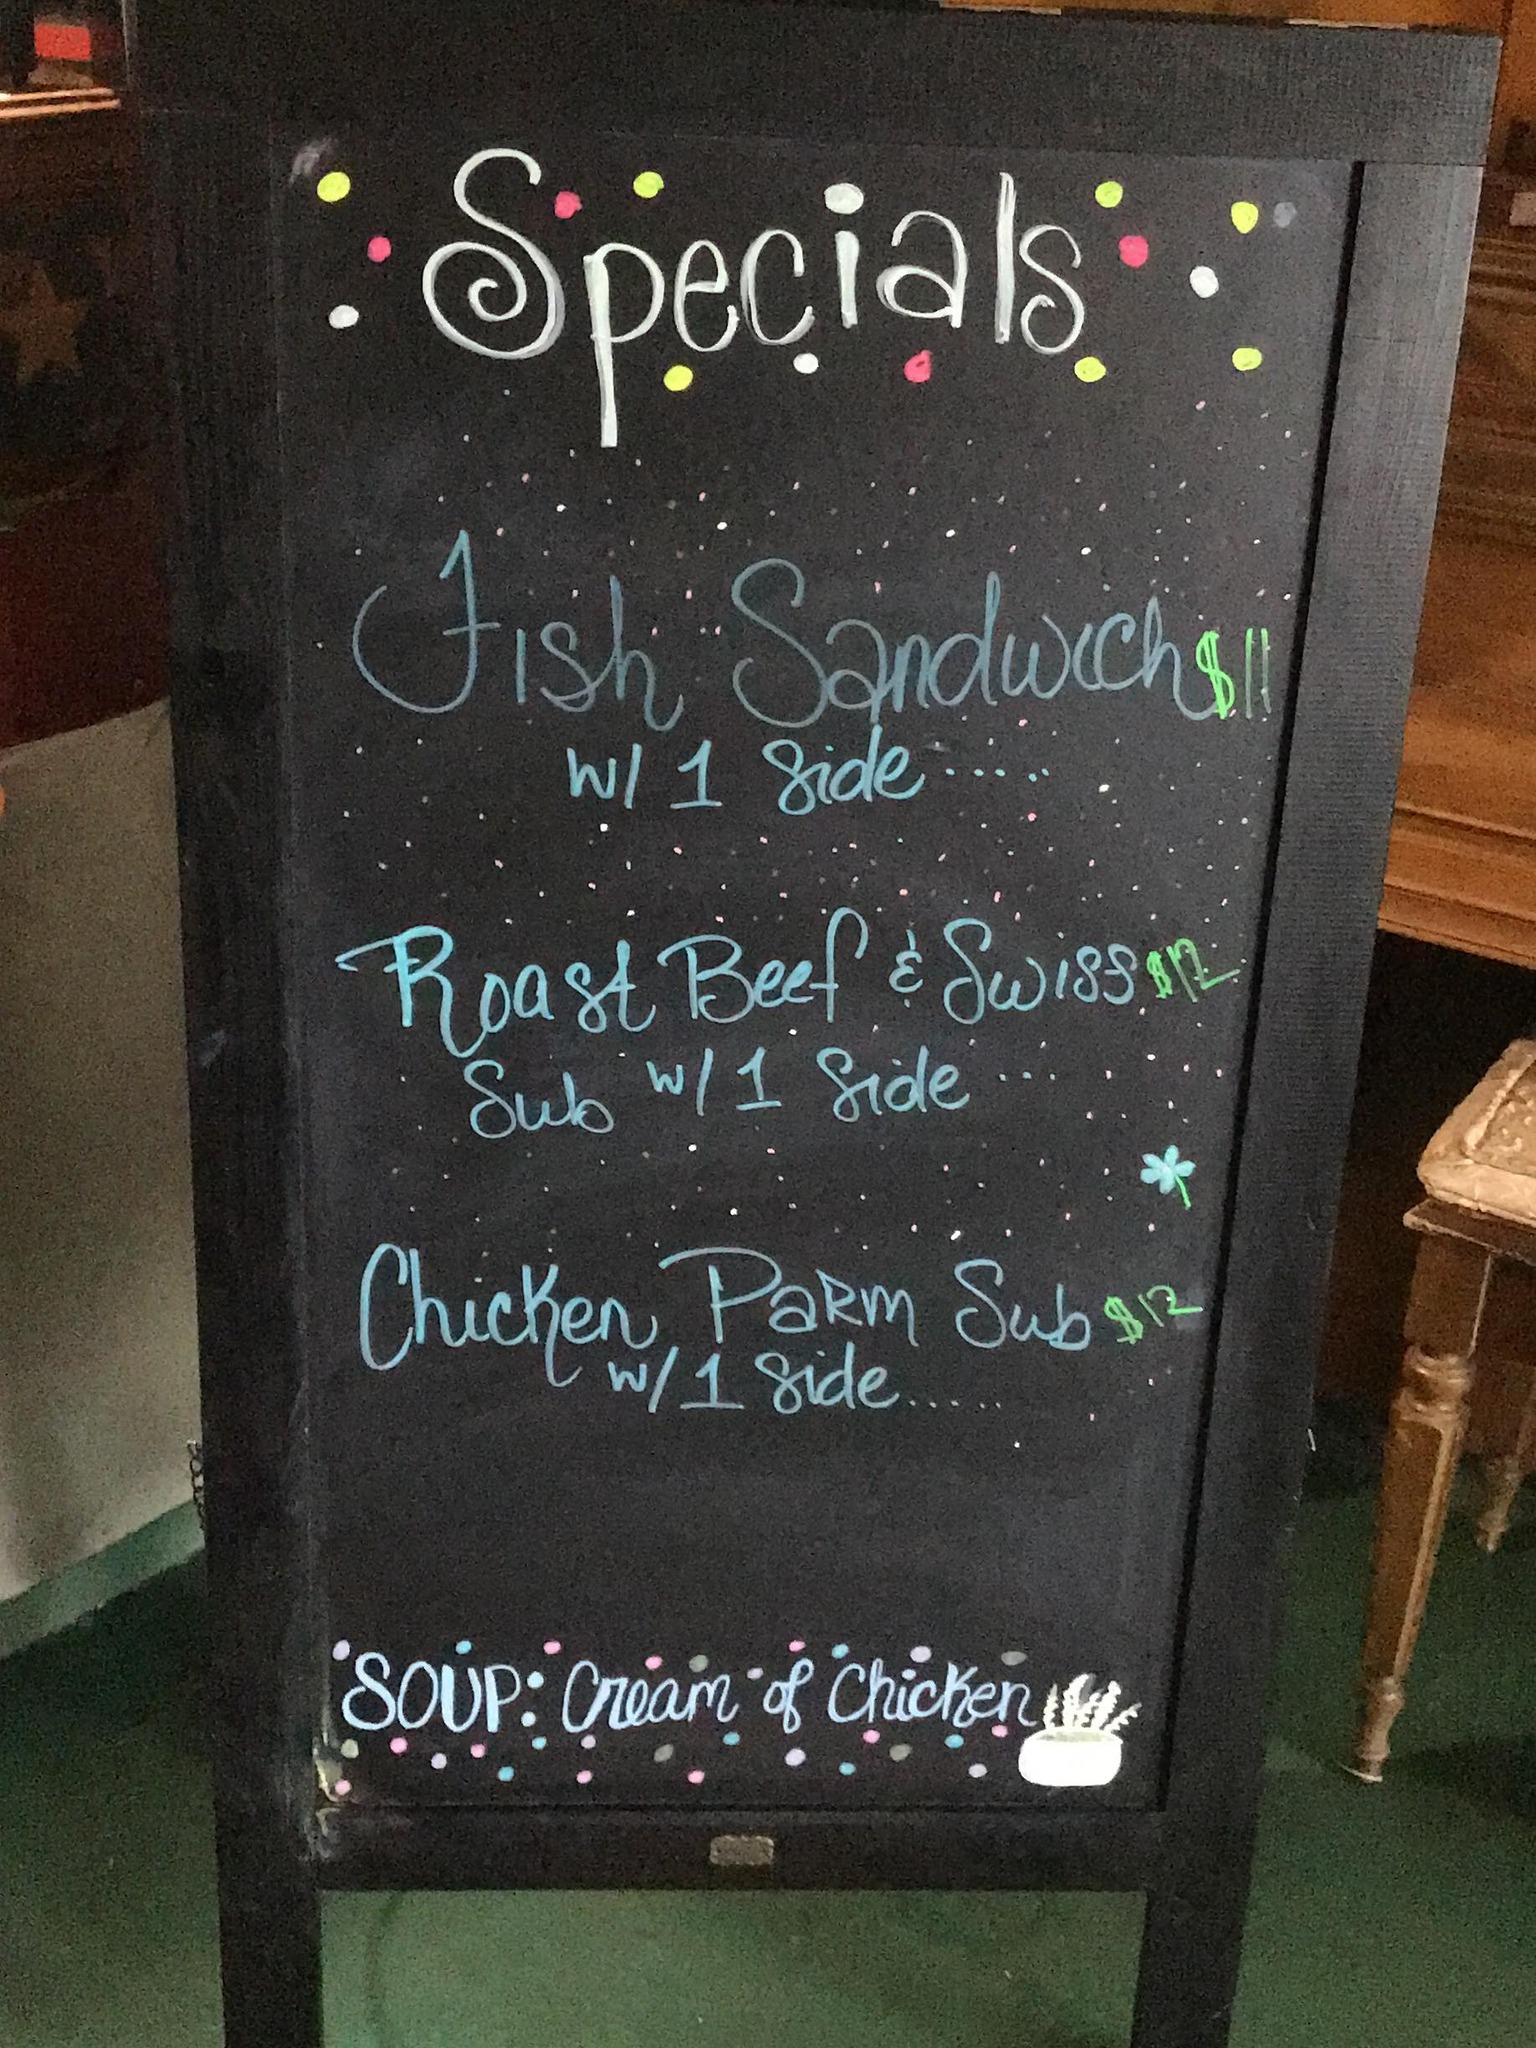 Specials
Fish Sandwich $11
w/ 1 Side.....
Roast Beef & Swiss $12
Sub w/ 1 Side...
Chicken Parm Sub $12
w/ 1 Side.....
SOUP: Cream of Chicken